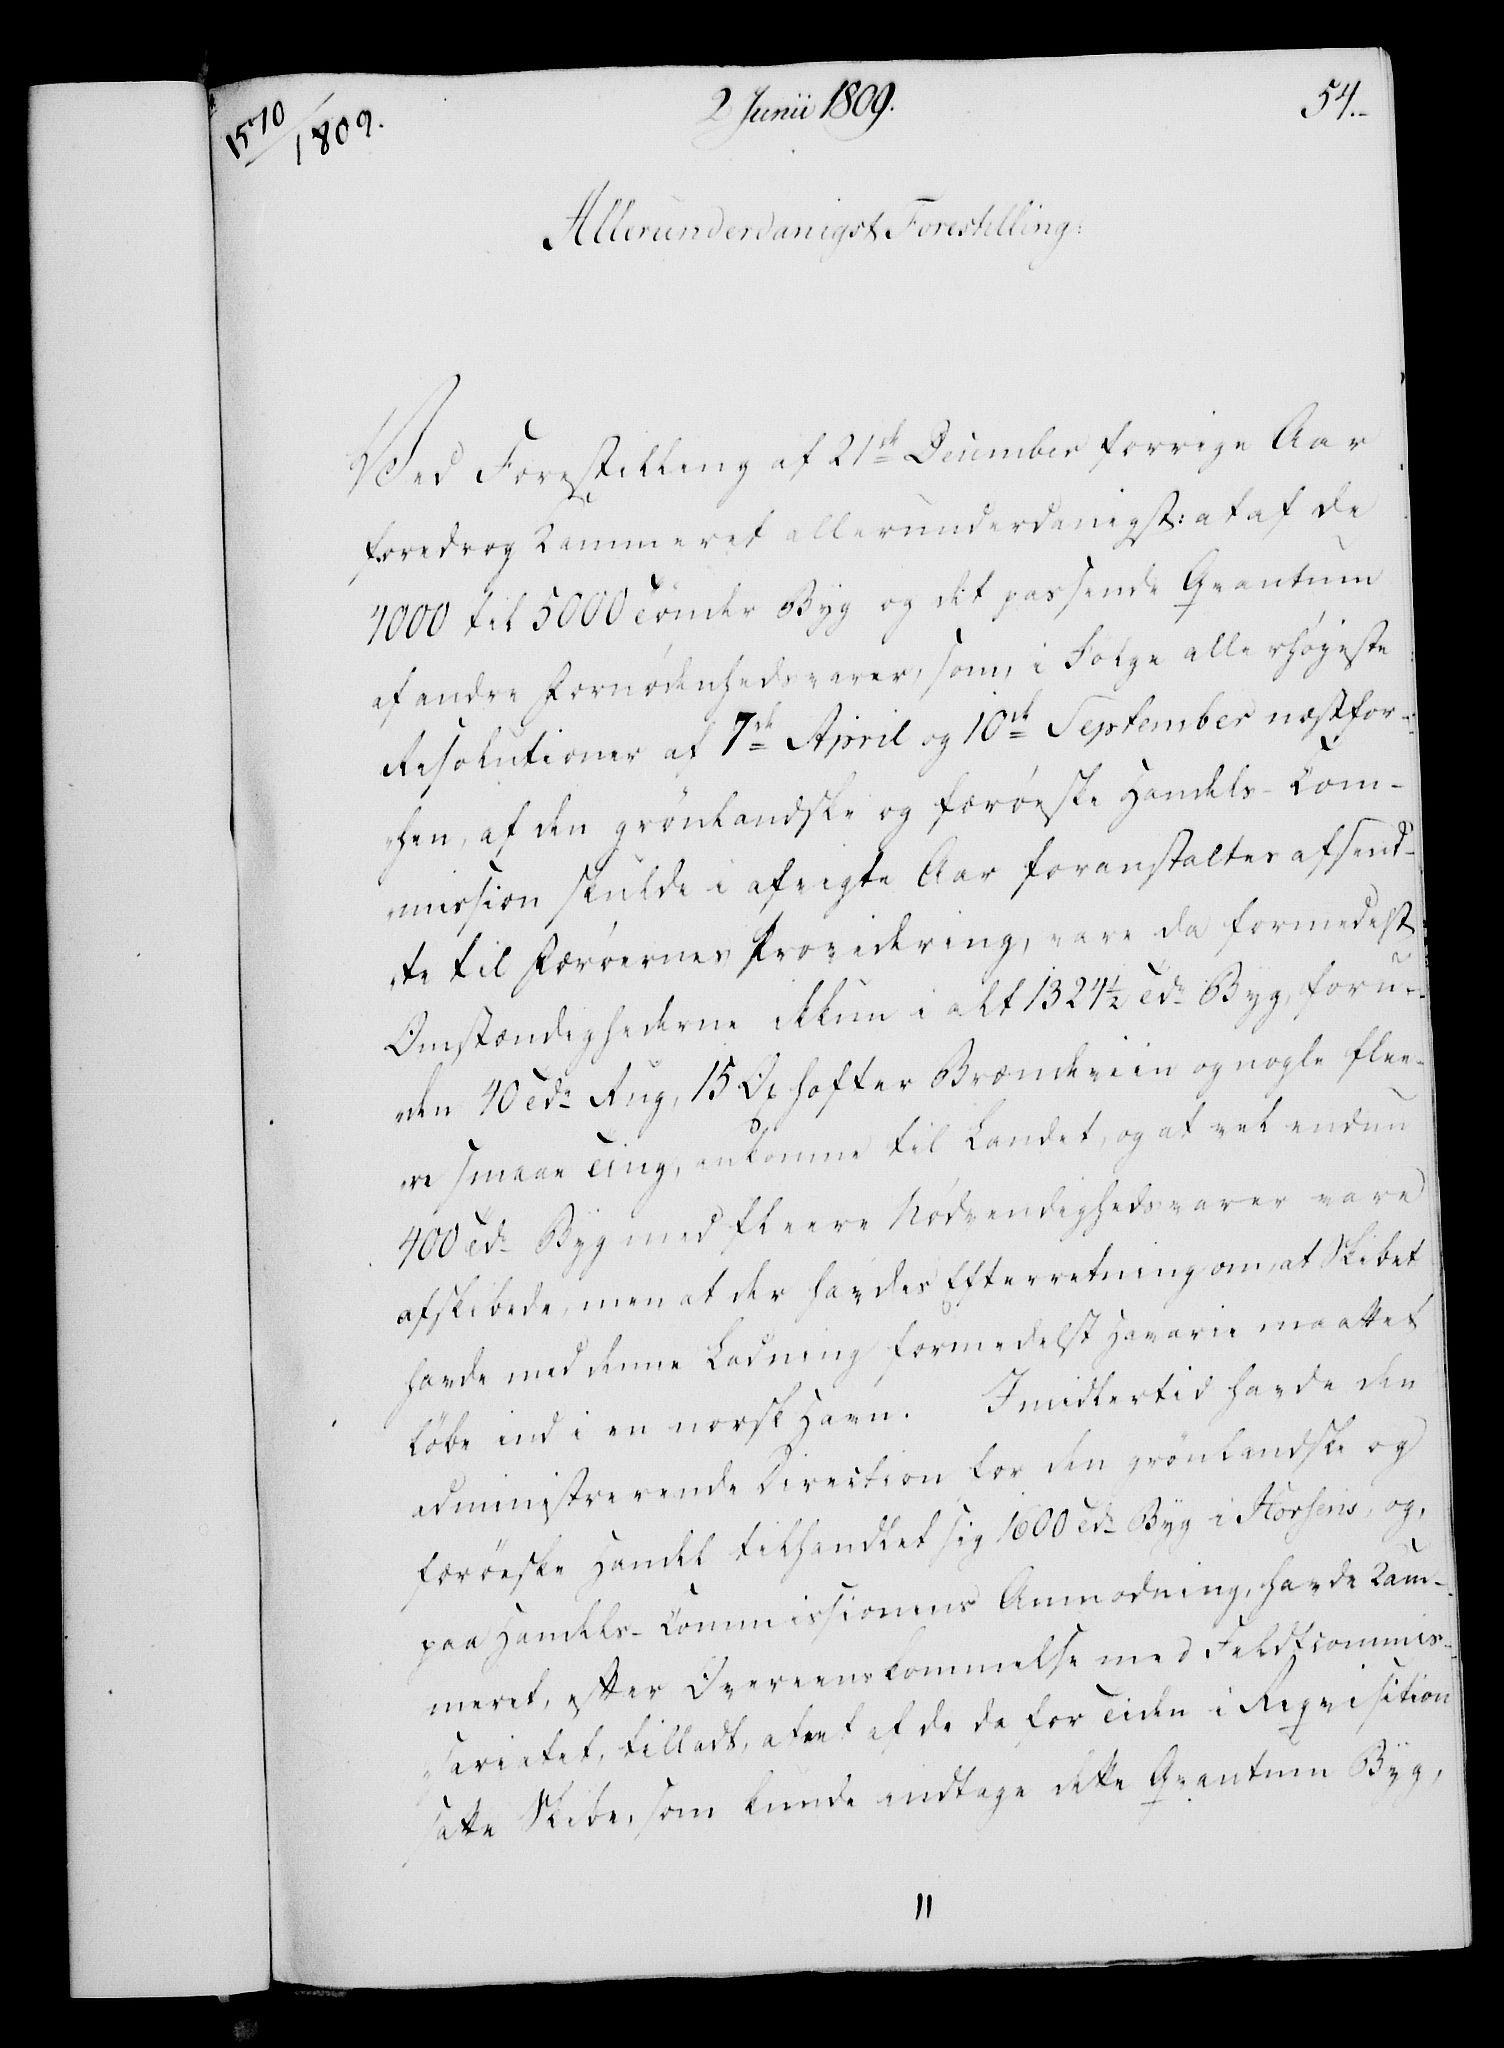 1570/1809.
2 Junii 1809.
54.-
Allerunderdanigst Forestilling:
Ved Forestilling af 21de December forrige Aar
foredrog Kammeret allerunderdanigst: at af de
4000 til 5000 Tønder Byg og det passende Qvantum
af andre Fornødenhedsvarer, som, i Følge allerhøieste
Resolutioner af 7de April og 10de September næstfor-
hen, af den grønlandske og færøeske Handels-Com-
mission skulde i afvigte Aar foranstaltes afsend-
te til Færøernes Providering, vare da formedelst
Omstændighederne ikkun i alt 1324½ Tdr Byg, foru-
den 40 Tdr Rug, 15 Oxhofter Brændeviin og nogle flee-
re smaae Ting, ankomne til Landet, og at vel endnu
400 Tdr Byg med fleere Nødvendighedsvarer vare
afskibede, men at der havdes Efterretning om, at Skibet
havde med denne Ladning formedelst Havarie maattet
løbe ind i en norsk Havn. Imidlertid havde den
administrerende Direction for den grønlandske og
færøeske Handel tilhandlet sig 1600 Tdr Byg i Horsens, og,
paa Handels-Commissionens Anmodning, havde Kam-
meret, efter Overeenskommelse med Feldtcommis-
sariatet, tilladt, at eet af de da for Tiden i Reqvisition
satte Skibe, som kunde indtage dette Qvantum Byg,
11